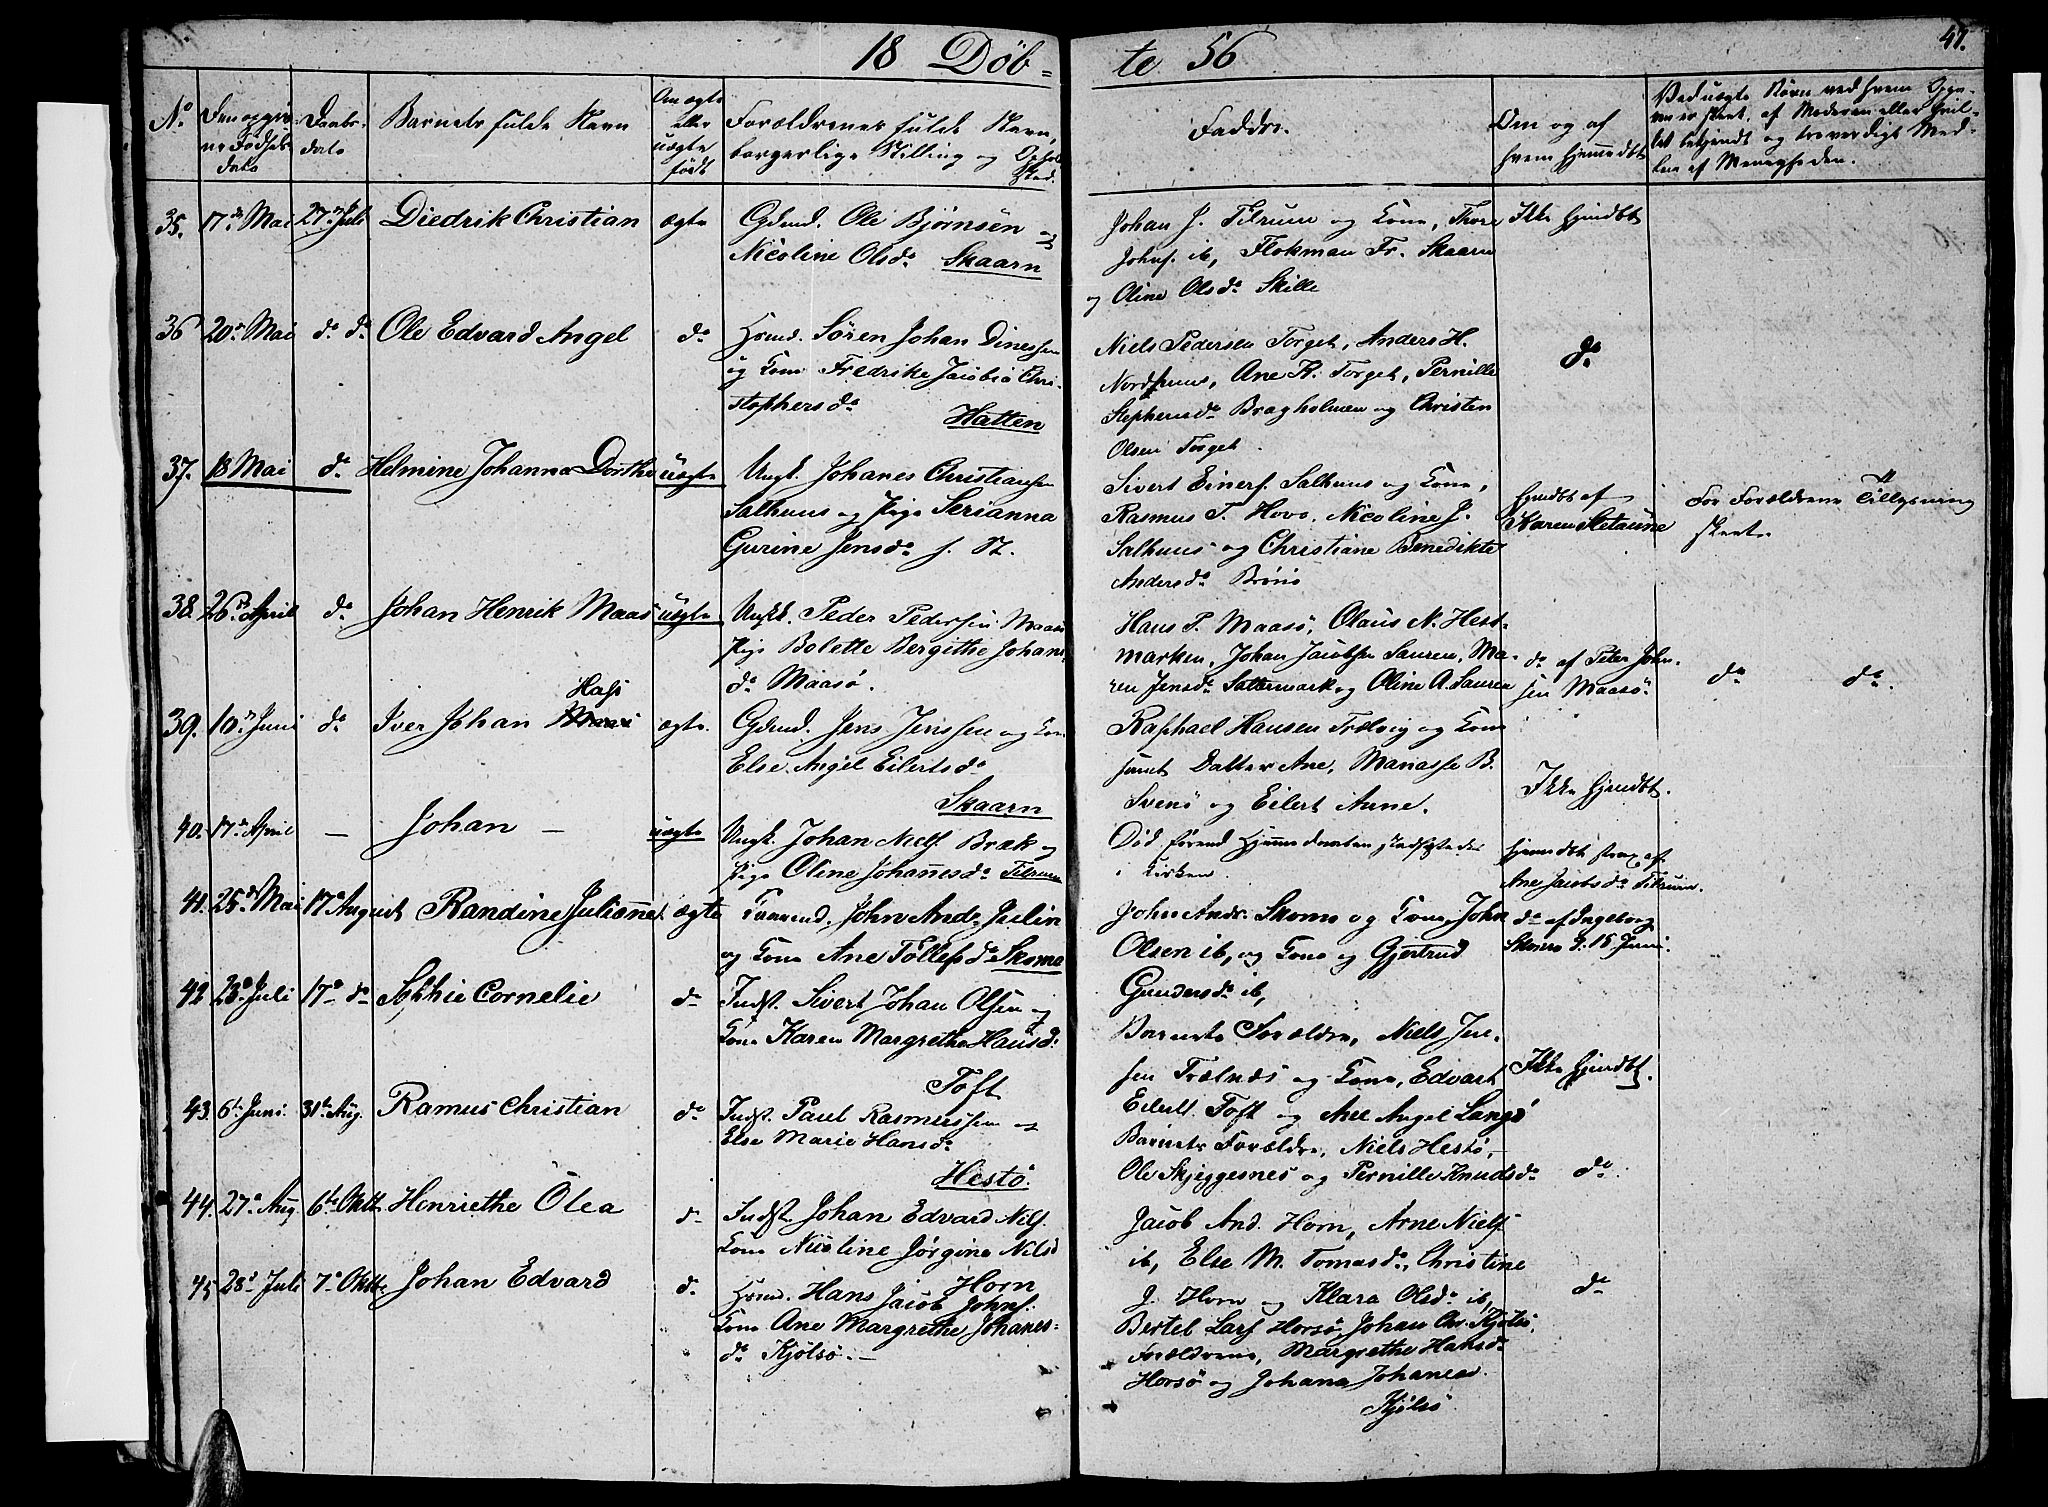 18 Døb=
te 56
47.
No
Den opgiv-
ne Fødsels
dato
Daabs-
dato
Barnets fulde Navn
Om ægte
eller
uægte
født
Forældrenes fulde Navn,
borgerlige Stilling og Opholds
Sted.
Faddre.
Om og af
hvem hjemmedøbt
Ved uægte Børn ved hvem Opga-
ven er skeet, af Moderen eller hvil-
ket bekjendt og troværdigt Med-
lem af Menigheden.
35. 17de Mai 27de Juli Diedrik Christian ægte Gdmd. Ole Björnsen og
Nicoline Olsd. Skaarn
Johan J. Tilrum og Kone, Thore
Johns. ib, Flokman Fr. Skaarn
og Oline Olsda Skille
Ikke hjmdbt
36 20de Mai do do Ole Edvard Angel do Hsmd. Sören Johan Dinessen
og Kone Fredrike Jacobia Chri-
stophersda
Hatten
Niels Pedersen Torget, Anders H.
Nordhuus, Ane K. Torget, Pernille
Stephensda Bragholmen og Christen
Olsen Torget.
do
37. 18 Mai do Helmine Johanna Dorthe uægte Ungk. Johanes Christiansen
Salhuus og Pige Serianna
Gurine Jensda s. St.
Sivert Einers. Salhuus og Kone,
Rasmus T. Hovo, Nicoline J.
Salhuus og Christiane Benedikte
Andersda Brönö
hjmdbt af
Karen
For Forældrene Tillysning
skeet.
38. 26de April do Johan Henrik Maas uægte Ungk. Peder Pedersen Maasö
Pige Bolette Bergithe Johans
da Maasö.
Hans P. Maasö, Olaus N. Hest-
marken, Johan Jacobsen Sauren, Ma-
ren Jensda Saltermark og Oline A. Sauren
do af Peter John-
sen Maasö.
do do.
39. 10de Juni do Iver Johan Hass ægte. Gdmd. Jens Jenssen og Kone
Else Angel Eilertsda
Skaarn
Raphael Hansen Trælvig og Kone
samt Datter Ane, Manasse B.
Svenö og Eilert Aune.
Ikke hjmdbt.
40. 17de April — Johan — uægte Ungk. Johan Niels. Bræk og
Pige Oline Johanesda Tilrum
Död förend Hjemmedaaben stadfæstedes
i Kirken.
hjemmedbt strax af
Ane Jacobsda Tilrum.
41. 25de Mai 17de August Randine Julianne ægte John Andr. Julin
og Kone Ane Tollefsda Skomo
John Andr. Skomo og Kone, John
Olsen ib, og Kone og Gjertrud
Gundersda ib,
do af Ingeborg
Skomo d. 15 Juni
42 28de Juli 17de do Sophie Cornelie do Indst. Sivert Johan Olsen og
Kone Karen Margrethe Hansd.
Toft
Barnets Forældre, Niels Jen-
sen Trælnæs og Kone, Edvart
Eilert. Toft og Ane Angel Langö
Ikke hjmdbt.
43. 6te Juni. 31te Aug. Ramus Christian do Indst. Paul Rasmussen og
Else Marie Hansda
Hestö.
Barnets Forældre, Niels Hestö,
Ole Skjeggesnes og Pernille Knudsda
do
44. 27de Aug. 6te Oktb. Henriethe Olea do Indst. Johan Edvard Nils.
Kone Nicoline Jörgine Nilsd
Horn
Jacob And. Horn, Arne Niels.
ib, Else M. Tomasda, Christine
J. Horn og Klara Olsda ib,
do
45 28de Juli 7de Oktb. Johan Edvard do Hsmd. Hans Jacob Johns.
Kone Ane Margrethe Johanes-
da Kjölsö.—
Bertel Lars. Horsö, Johan Chr. Kjölsö,
Forældrene, Margrethe Hansda
Horsö og Johana Johanesd.
Kjölsö